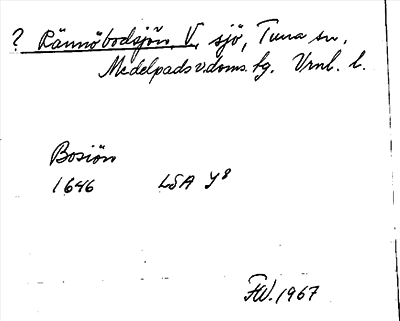 ? Rännöbodsjön, V, sjö, Tuna sn,
Medelpads v. doms. tg. Vrnl. l.
Bosiön
1646 LSA Y8
FW. 1967